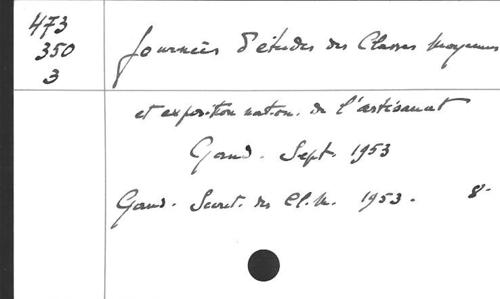 473
350
3
Journées d'études des Classes moyennes
et exposition nation. de l'artisanat
Gand. Sept. 1953
Gand. Secret. des Cl. M. 1953. 8°